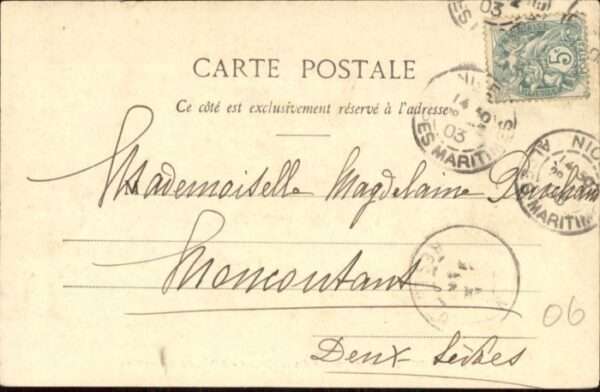 CARTE POSTALE
Ce côté est exclusivement réservé à l'adresse
M
Mademoiselle Magdelaine
Moncoutant
Deux Sèvres
5
NICE
14
03
ES MARITIM
NIC
ALPES MARITIM
03
06